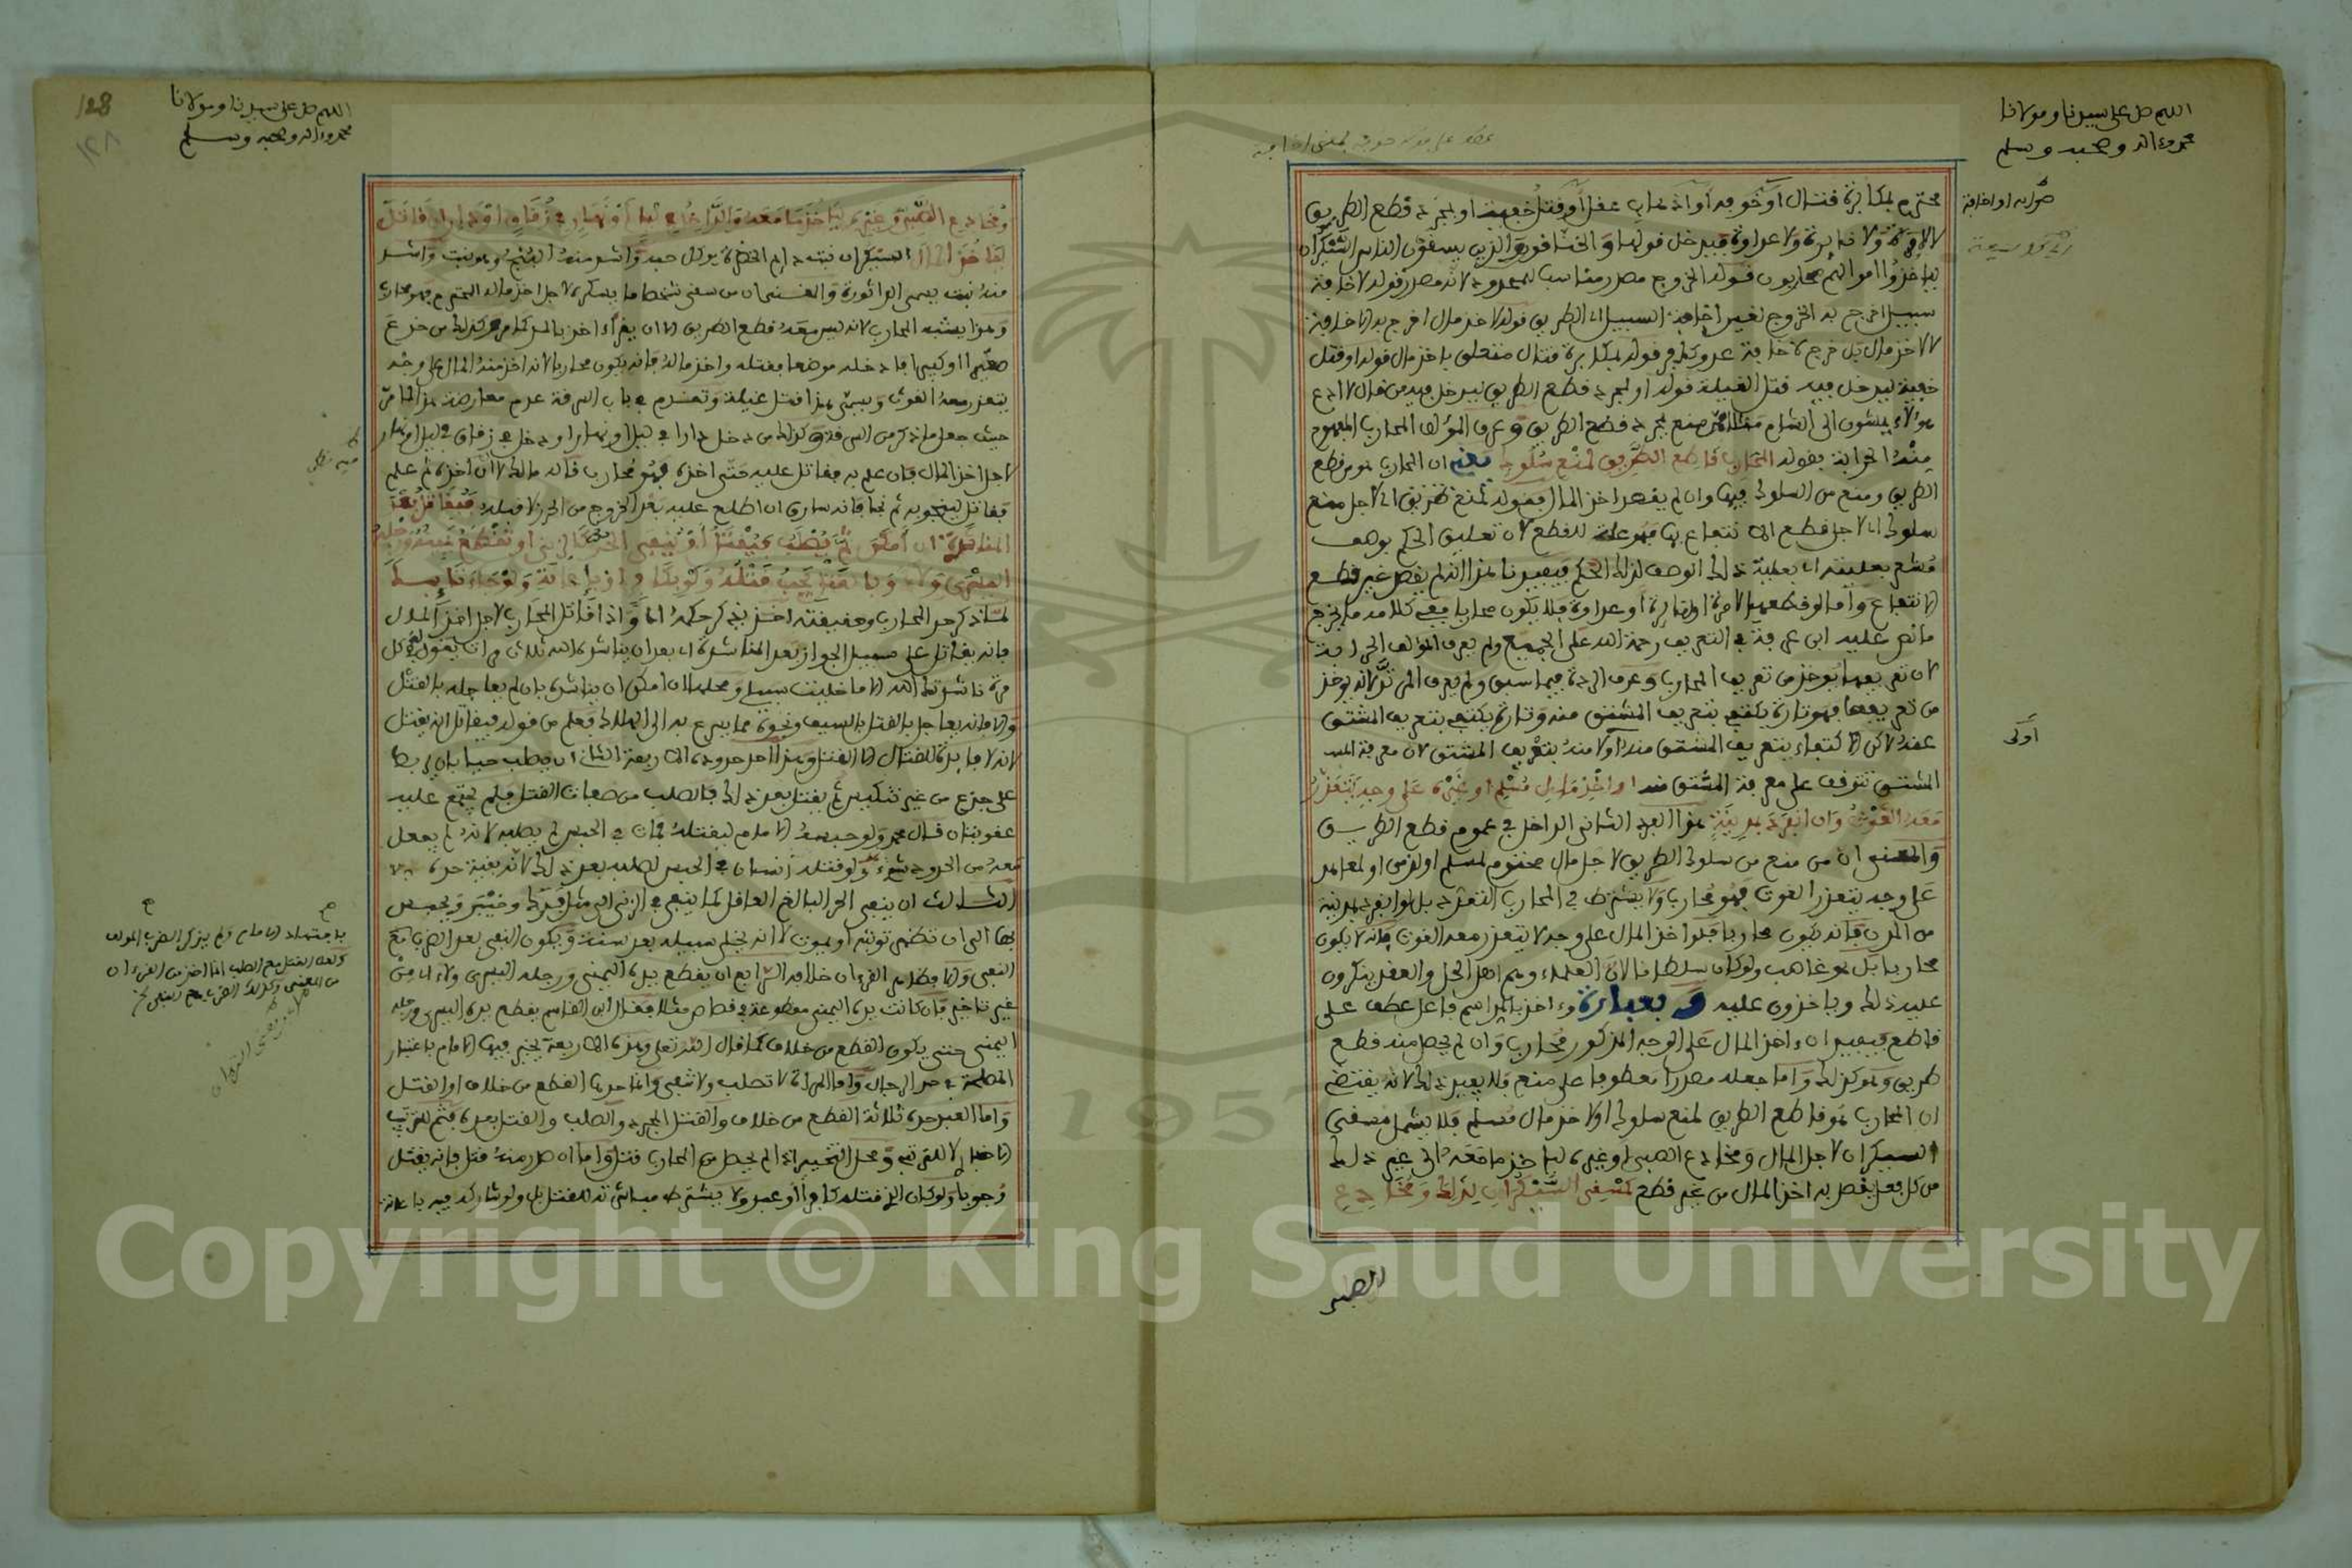 اللهم صل على سيدنا ومولانا
محمد وءاله وصحبه وسلم
محترم بمكابرة قتال أو خوفه أو اذهاب عقل أو قتل خفية أو لمجرد قطع الطريق
لا لإمرة ولا نايرة ولا عداوة فيدخل قولها والخناقون والذين يسقون الناس السيكران
لياخذوا اموالهم محاربون فقوله الخروج مصدر مناسب للمحدود لانه مصدر وقوله لاخافة
سبيل اخرج به الخروج لغير اخافة السبيل اي الطريق قوله لاخذ مال اخرج به الاخافة
لا لاخذ مال بل خرج لاخافة عدو كافر قوله بمكابرة قتال متعلق باخذ مال قوله او قتل
خفية ليدخل فيه قتل الغيلة قوله او لمجرد قطع الطريق ليدخل فيه من قال لا ادع
هؤلاء يمشون الى الشام مثلا لانه صنع لمجرد قطع الطريق وعرف المؤلف المحارب المفهوم
منه الحرابة بقوله المحارب قاطع الطريق لمنع سلوك يعني ان المحارب هو من قطع
الطريق ومنع من السلوك فيها وان لم يقصد اخذ المال فقوله لمنع سلوك اي لاجل منع
سلوك اي لاجل قطع الانتفاع بها فهو علة للقطع لان تعليق الحكم بوصف
مشعر بعلية ذلك الوصف لذلك الحكم فيفيدنا هذا انه لم يقصد غير قطع
الانتفاع وأما لو قطعها لامرة او نايرة او عداوة فلا يكون محاربا ففي كلامه ما يخرج
ما نص عليه ابن عرفة في التعريف رحمة الله على الجميع ولم يعرف المؤلف الحرابة
لان تعريفها يوخذ من تعريف المحارب وعرف الردة فيما سبق ولم يعرف المرتد لانه يوخذ
من تعريفها فهو تارة يكتفي بتعريف المشتق منه وتارة يكتفي بتعريف المشتق
عنه لاكن الاكتفاء بتعريف المشتق منه أولا منه بتعريف المشتق لان معرفة
المشتق تتوقف على معرفة المشتق منه او اخذ مال مسلم او غيره على وجه يتعذر
معه الغوث وان انفرد بمدينة هذا الفرد الثاني الداخل في عموم قطع الطريق
والمعنى ان من منع من سلوك الطريق لاجل مال محترم لمسلم او لذمي او لمعاهد
على وجه يتعذر الغوث فهو محارب ولا يشترط في المحارب التعدد بل لو انفرد بمدينة
من المدن فانه يكون محاربا فلو اخذ المال على وجه لا يتعذر معه الغوث فانه لا يكون
محاربا بل هو غاصب ولو كان سلطانا لان العلماء وهم اهل الحل والعقد ينكرون
عليه ذلك وياخذون عليه وبعبارة وءاخذ بالمد اسم فاعل عطف على
قاطع فيفيد ان ءاخذ المال على الوجه المذكور محارب وان لم يحصل منه قطع
طريق وهو كذلك واما جعله مصدرا معطوفا على منع فلا يفيد ذلك لانه يقتضي
ان المحارب هو قاطع الطريق لمنع سلوك او لاخذ مال مسلم فلا يشمل مسقي
السيكران لاجل المال ومخادع الصبي او غيره لياخذ ما معه الى غير ذلك
من كل فعل يقصد به اخذ المال من غير قطع كمسقي السيكران لذلك ومخادع
الصبي
صوابه او اخافة
أولى
اللهم صل على سيدنا ومولانا
محمد وءاله وصحبه وسلم
128
١٢٨
ومخادع الصبي أو غيره لياخذ ما معه والداخل في ليل أو نهار في زقاق أو دار قاتل
لياخذ المال السيكران نبت دايم الخضرة يوكل حبه وأشد منه البنج وهو نبت وأشد
منه نبت يسمى الداتورة والمعنى ان من سقى شخصا ما يسكره لاجل اخذ ماله المحترم فهو محارب
وهذا يشبه المحارب لانه ليس معه قطع الطريق الا ان يقرأ ءاخذ بالمد كما مر وكذلك من خدع
صغيرا او كبيرا فادخله موضعا فقتله واخذ ماله فانه يكون محاربا لانه اخذ منه المال على وجه
يتعذر معه الغوث ويسمى هذا قتل غيلة وتقدم في باب السرقة عدم معارضة هذا لما مر
حيث جعل ما ذكر من السرقة وكذلك من دخل دارا في ليل او نهار او دخل في زقاق في ليل او نهار
لاجل اخذ المال فان علم به فقاتل عليه حتى اخذه فهو محارب قاله مالك لا ان اخذه ثم علم
فقاتل لينجو به ثم نجا فانه سارق ان اطلع عليه بعد الخروج من الحرز لا قبله فيقاتل بعد
المناشدة ان أمكن ثم يصلب فيقتل أو ينفى الحر كالزنى أو تقطع يمينه ورجله
اليسرى ولاء وبالقتل يجب قتله ولو بكافر او باعانة ولو جاء تايبا
لما ذكر حد المحارب وحقيقته اخذ يذكر حكمه اي واذا قاتل المحارب لاجل اخذ المال
فانه يقاتل على سبيل الجواز بعد المناشدة اي بعد ان يناشده الله ثلاث مرات يقول في كل
مرة ناشدتك الله الا ما خليت سبيلي ومحلها ان امكن ان يناشده بان لم يعاجله بالقتل
والا فانه يعاجل بالقتل بالسيف ونحوه مما يسرع به الى الهلاك فعلم من قوله فيقاتل انه يقتل
لانه لا فايدة للقتال الا القتل وهذا احد حدوده الاربعة الثاني ان يصلب حيا بان يربط
على جذع من غير تنكيس ثم يقتل بعد ذلك فالصلب من صفات القتل فلم يجتمع عليه
عقوبتان قال محمد ولو حبسه الامام ليقتله فمات في الحبس لم يصلبه لانه لم يفعل
معه من الحدود شيء ولو قتله انسان في الحبس لصلبه بعد ذلك لانه بقية حده
الثالث ان ينفى الحر البالغ العاقل كما ينفى في الزنى الى مثل فدك وخيبر ويحبس
بها الى ان تظهر توبته او يموت لا انه يخلى سبيله بعد سنة ويكون النفي بعد الضرب مع
النفي والا فظاهر القرءان خلافه الرابع ان يقطع يده اليمنى ورجله اليسرى ولاء اي من
غير تاخير فان كانت يده اليمنى مقطوعة في قصاص مثلا فقال ابن القاسم يقطع يده اليسرى ورجله
اليمنى حتى يكون القطع من خلاف كما قال الله تعلى وهذه الاربعة يخير فيها الامام باعتبار
المصلحة في حق الرجال وأما المرأة لا تصلب ولا تنفى وانما حدها القطع من خلاف او القتل
وأما العبد حده ثلاثة القطع من خلاف والقتل المجرد والصلب والقتل بعده فثم للترتيب
الاخباري لا للترتيب ومحل التخيير اذا لم يحصل من المحارب قتل واما ان صدر منه قتل فانه يقتل
وجوبا ولو كان الذي قتله كافرا أو عبدا ولا يشترط مباشرته للقتل بل ولو شارك فيه باعانة
باجتهاد الامام ولم يذكر الضرب المؤلف